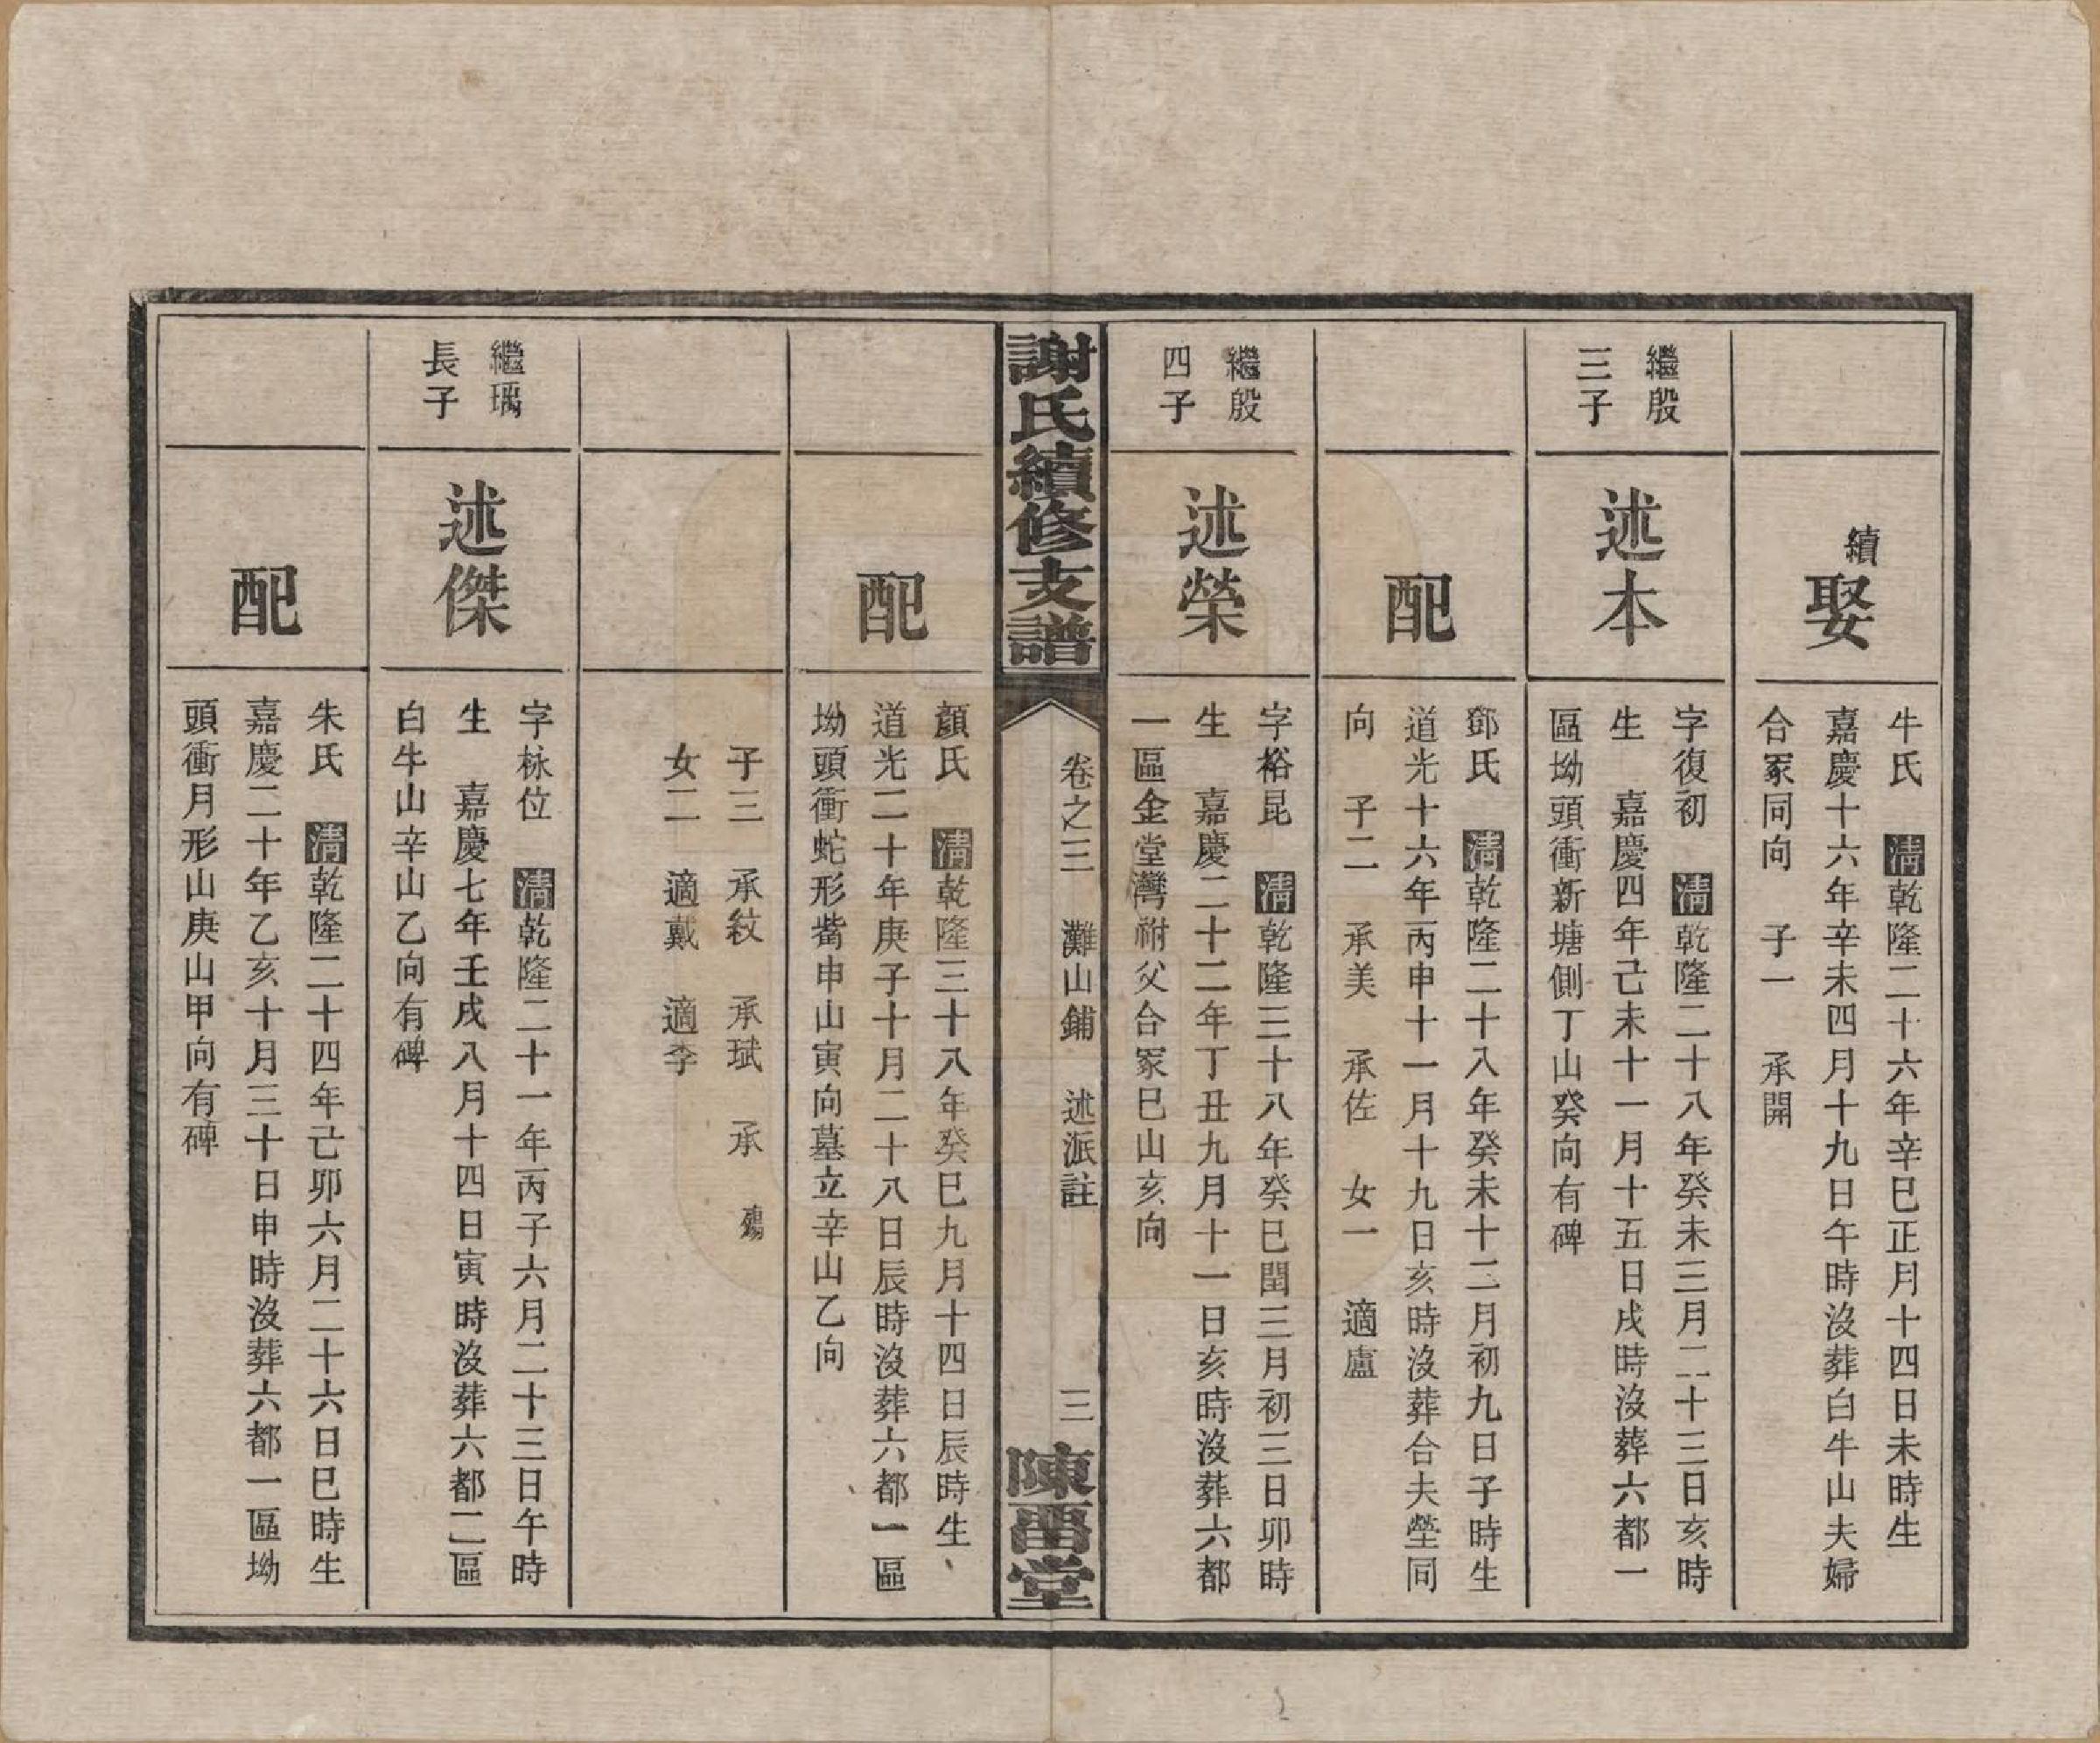 續
娶
牛氏　清乾隆二十六年辛巳正月十四日未時生
嘉慶十六年辛未四月十九日午時沒葬白牛山夫婦
合冢同向　子一　承開
繼殷
三子
述本
字復初　清乾隆二十八年癸未三月二十三日亥時
生　嘉慶四年己未十一月十五日戌時沒葬六都一
區坳頭衝新塘側丁山癸向有碑
配
鄧氏　清乾隆二十八年癸未十二月初九日子時生
道光十六年丙申十一月十九日亥時沒葬合夫塋同
向　子二　承美　承佐　女一　適盧
繼殷
四子
述榮
字裕昆　清乾隆三十八年癸巳閏三月初三日卯時
生　嘉慶二十二年丁丑九月十一日亥時沒葬六都
一區金堂灣祔父合冢巳山亥向
謝氏續修支譜
卷之三　灘山鋪　述派註
三
陳畱堂
配
顏氏　清乾隆三十八年癸巳九月十四日辰時生
道光二十年庚子十月二十八日辰時沒葬六都一區
坳頭衝蛇形嘴申山寅向墓立辛山乙向
子三　承紋　承珷　承　殤
女二　適戴　適李
繼瑀
長子
述傑
字栐位　清乾隆二十一年丙子六月二十三日午時
生　嘉慶七年壬戌八月十四日寅時沒葬六都二區
白牛山辛山乙向有碑
配
朱氏　清乾隆二十四年己卯六月二十六日巳時生
嘉慶二十年乙亥十月三十日申時沒葬六都一區坳
頭衝月形山庚山甲向有碑